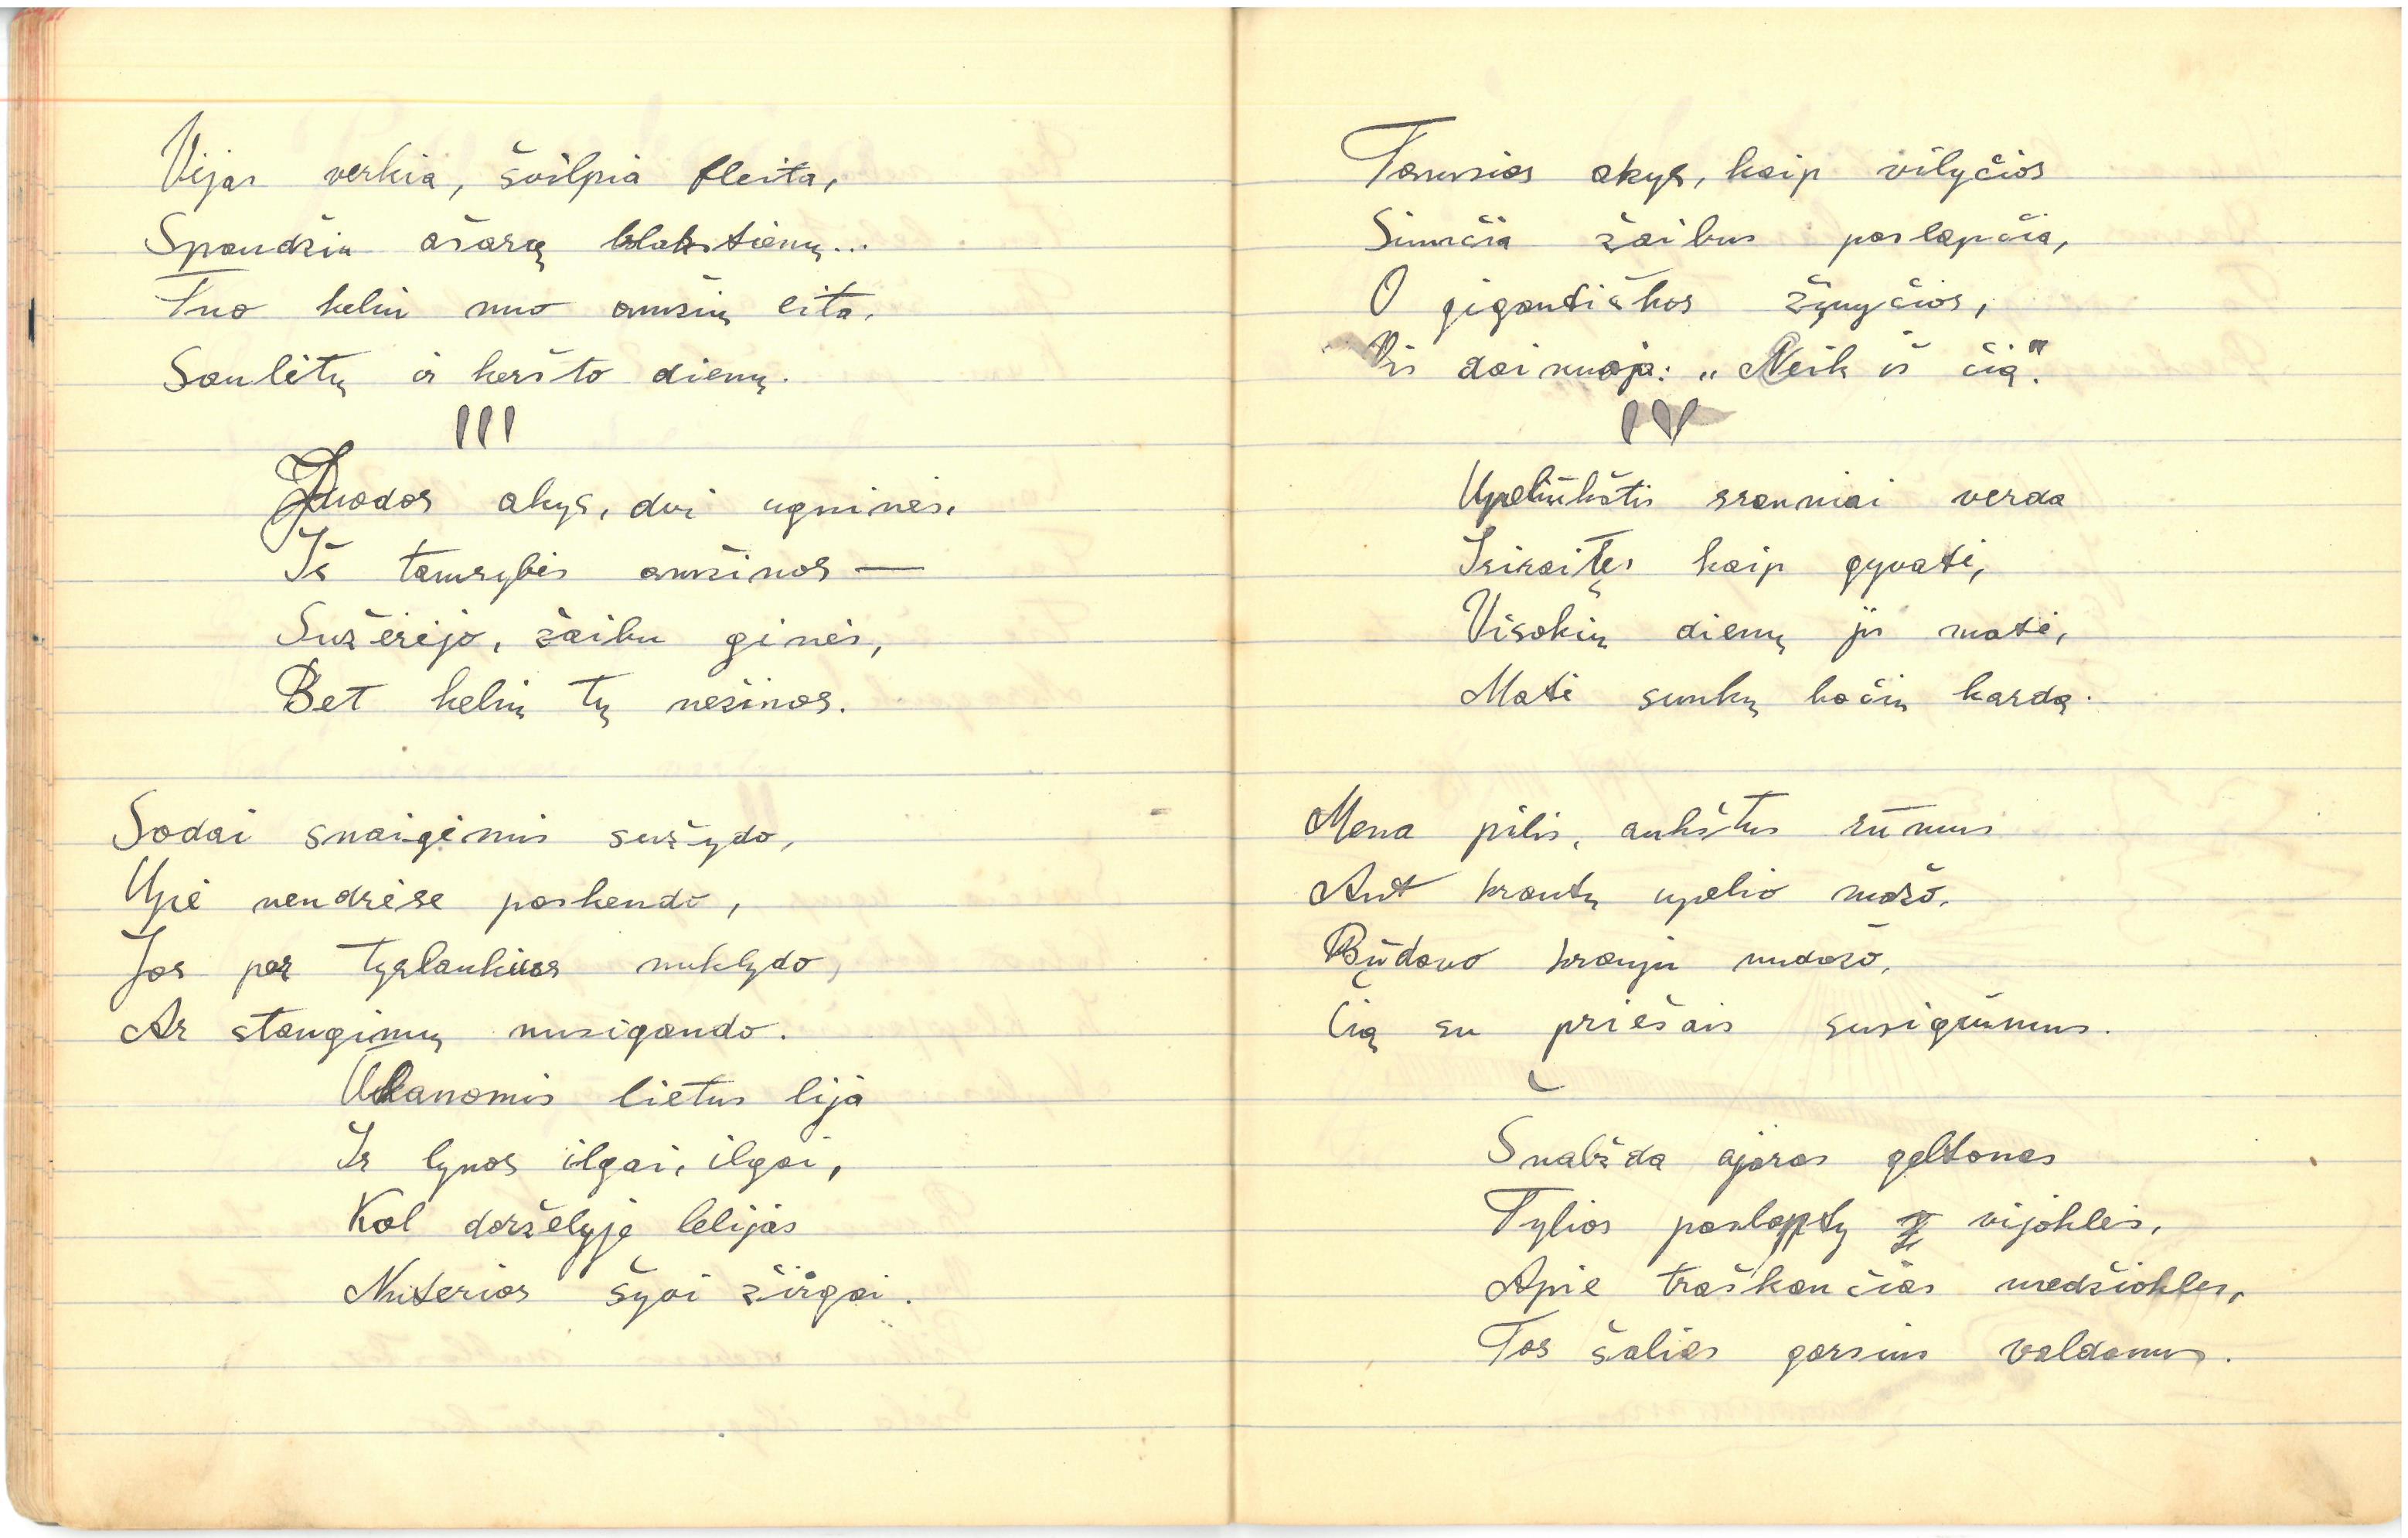 Vėjas verkia, švilpia fleita,
Spaudžia ašarą blakstienų...
Tuo keliu nuo amžių eita,
Saulėtų ir keršto dienų.
III
Juodos akys, dvi ugninės,
Iš tamsybės amžinos —
Sužėrėjo, žaibu ginės,
Bet kelių tų nežinos.
Sodai snaigėmis sužydo,
Upė nendrėse paskendo,
Jos per tyrlaukius nuklydo,
Ar staugimų nusigando.
Ūkanomis lietus lija
Ir lynos ilgai, ilgai,
Kol darželyje lelijas
Nuterios šyvi žirgai.
Tamsios akys, kaip vilyčios
Siunčia žaibus paslapčia,
O gigantiškos žynyčios,
Vis dainuoja: „Neik iš čia".
IV
Upeliūkštis srauniai verda
Išsiraitęs kaip gyvatė,
Visokių dienų jis matė,
Matė sunkų kočių kardą.
Mena pilis, aukštus rūmus
Ant krantų upelio mažo,
Būdavo krauju nudažo,
Čia su priešais susigrūmus.
Šnabžda ajeras geltonas
Tylias paslaptų vijokles,
Apie traškančias medžiokles,
Tos šalies garsius valdonus.